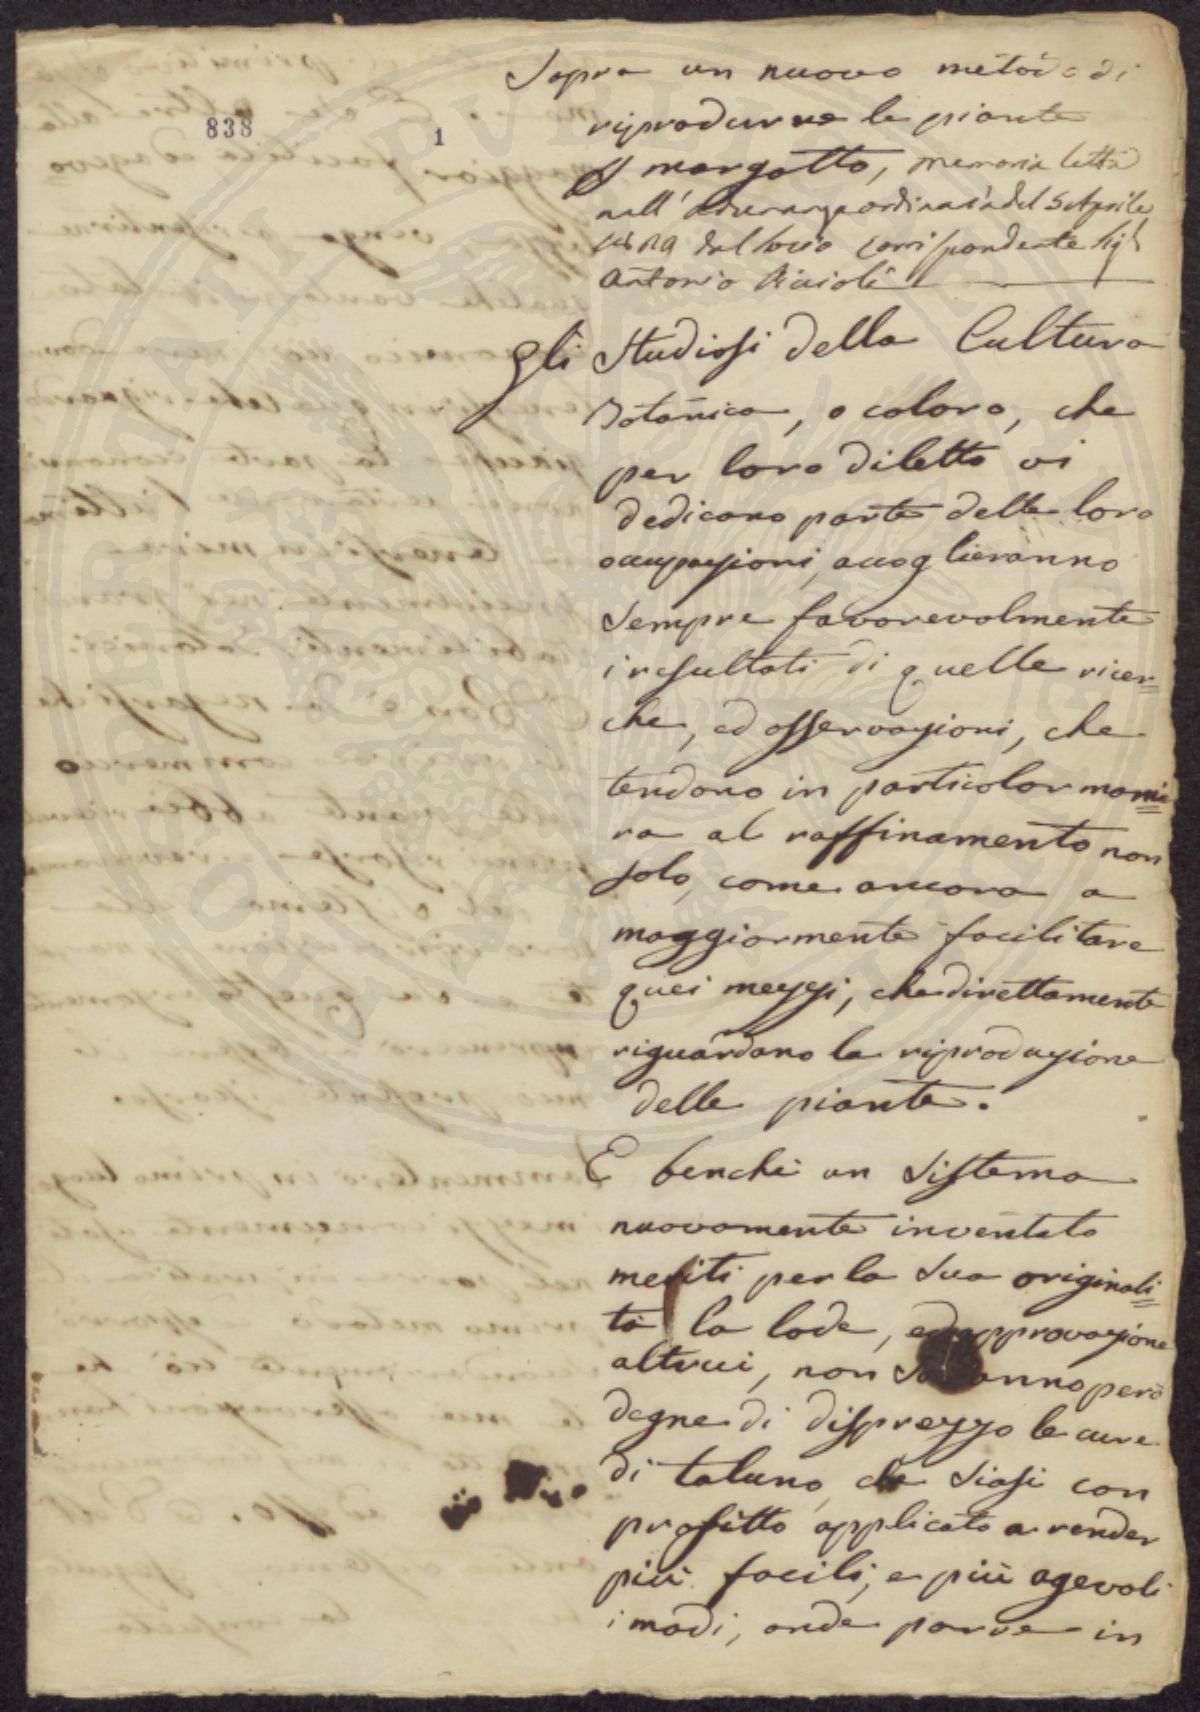 838
1
Sopra un nuovo metodo di
riprodurre le piante
margotto, memoria letta
nell'Adunanza ordinaria del 5 Aprile
dal socio corrispondente Sigr
Antonio
Gli Studiosi della Cultura
Botanica, o coloro, che
per loro diletto vi
dedicano parte delle loro
occupazioni, accoglieranno
sempre favorevolmente
i resultati di quelle ricer=
che, ed osservazioni, che
tendono in particolar manie=
ra al raffinamento non
solo, come ancora a
maggiormente facilitare
quei mezzi, che direttamente
riguardano la riproduzione
delle piante.
E benchè un sistema
nuovamente inventato
meriti per la sua originali=
tà la lode, ed approvazione
altrui, non saranno però
degne di disprezzo le cure
di taluno, che siasi con
profitto applicato a render
più facili, e più agevoli
i modi, onde porre in